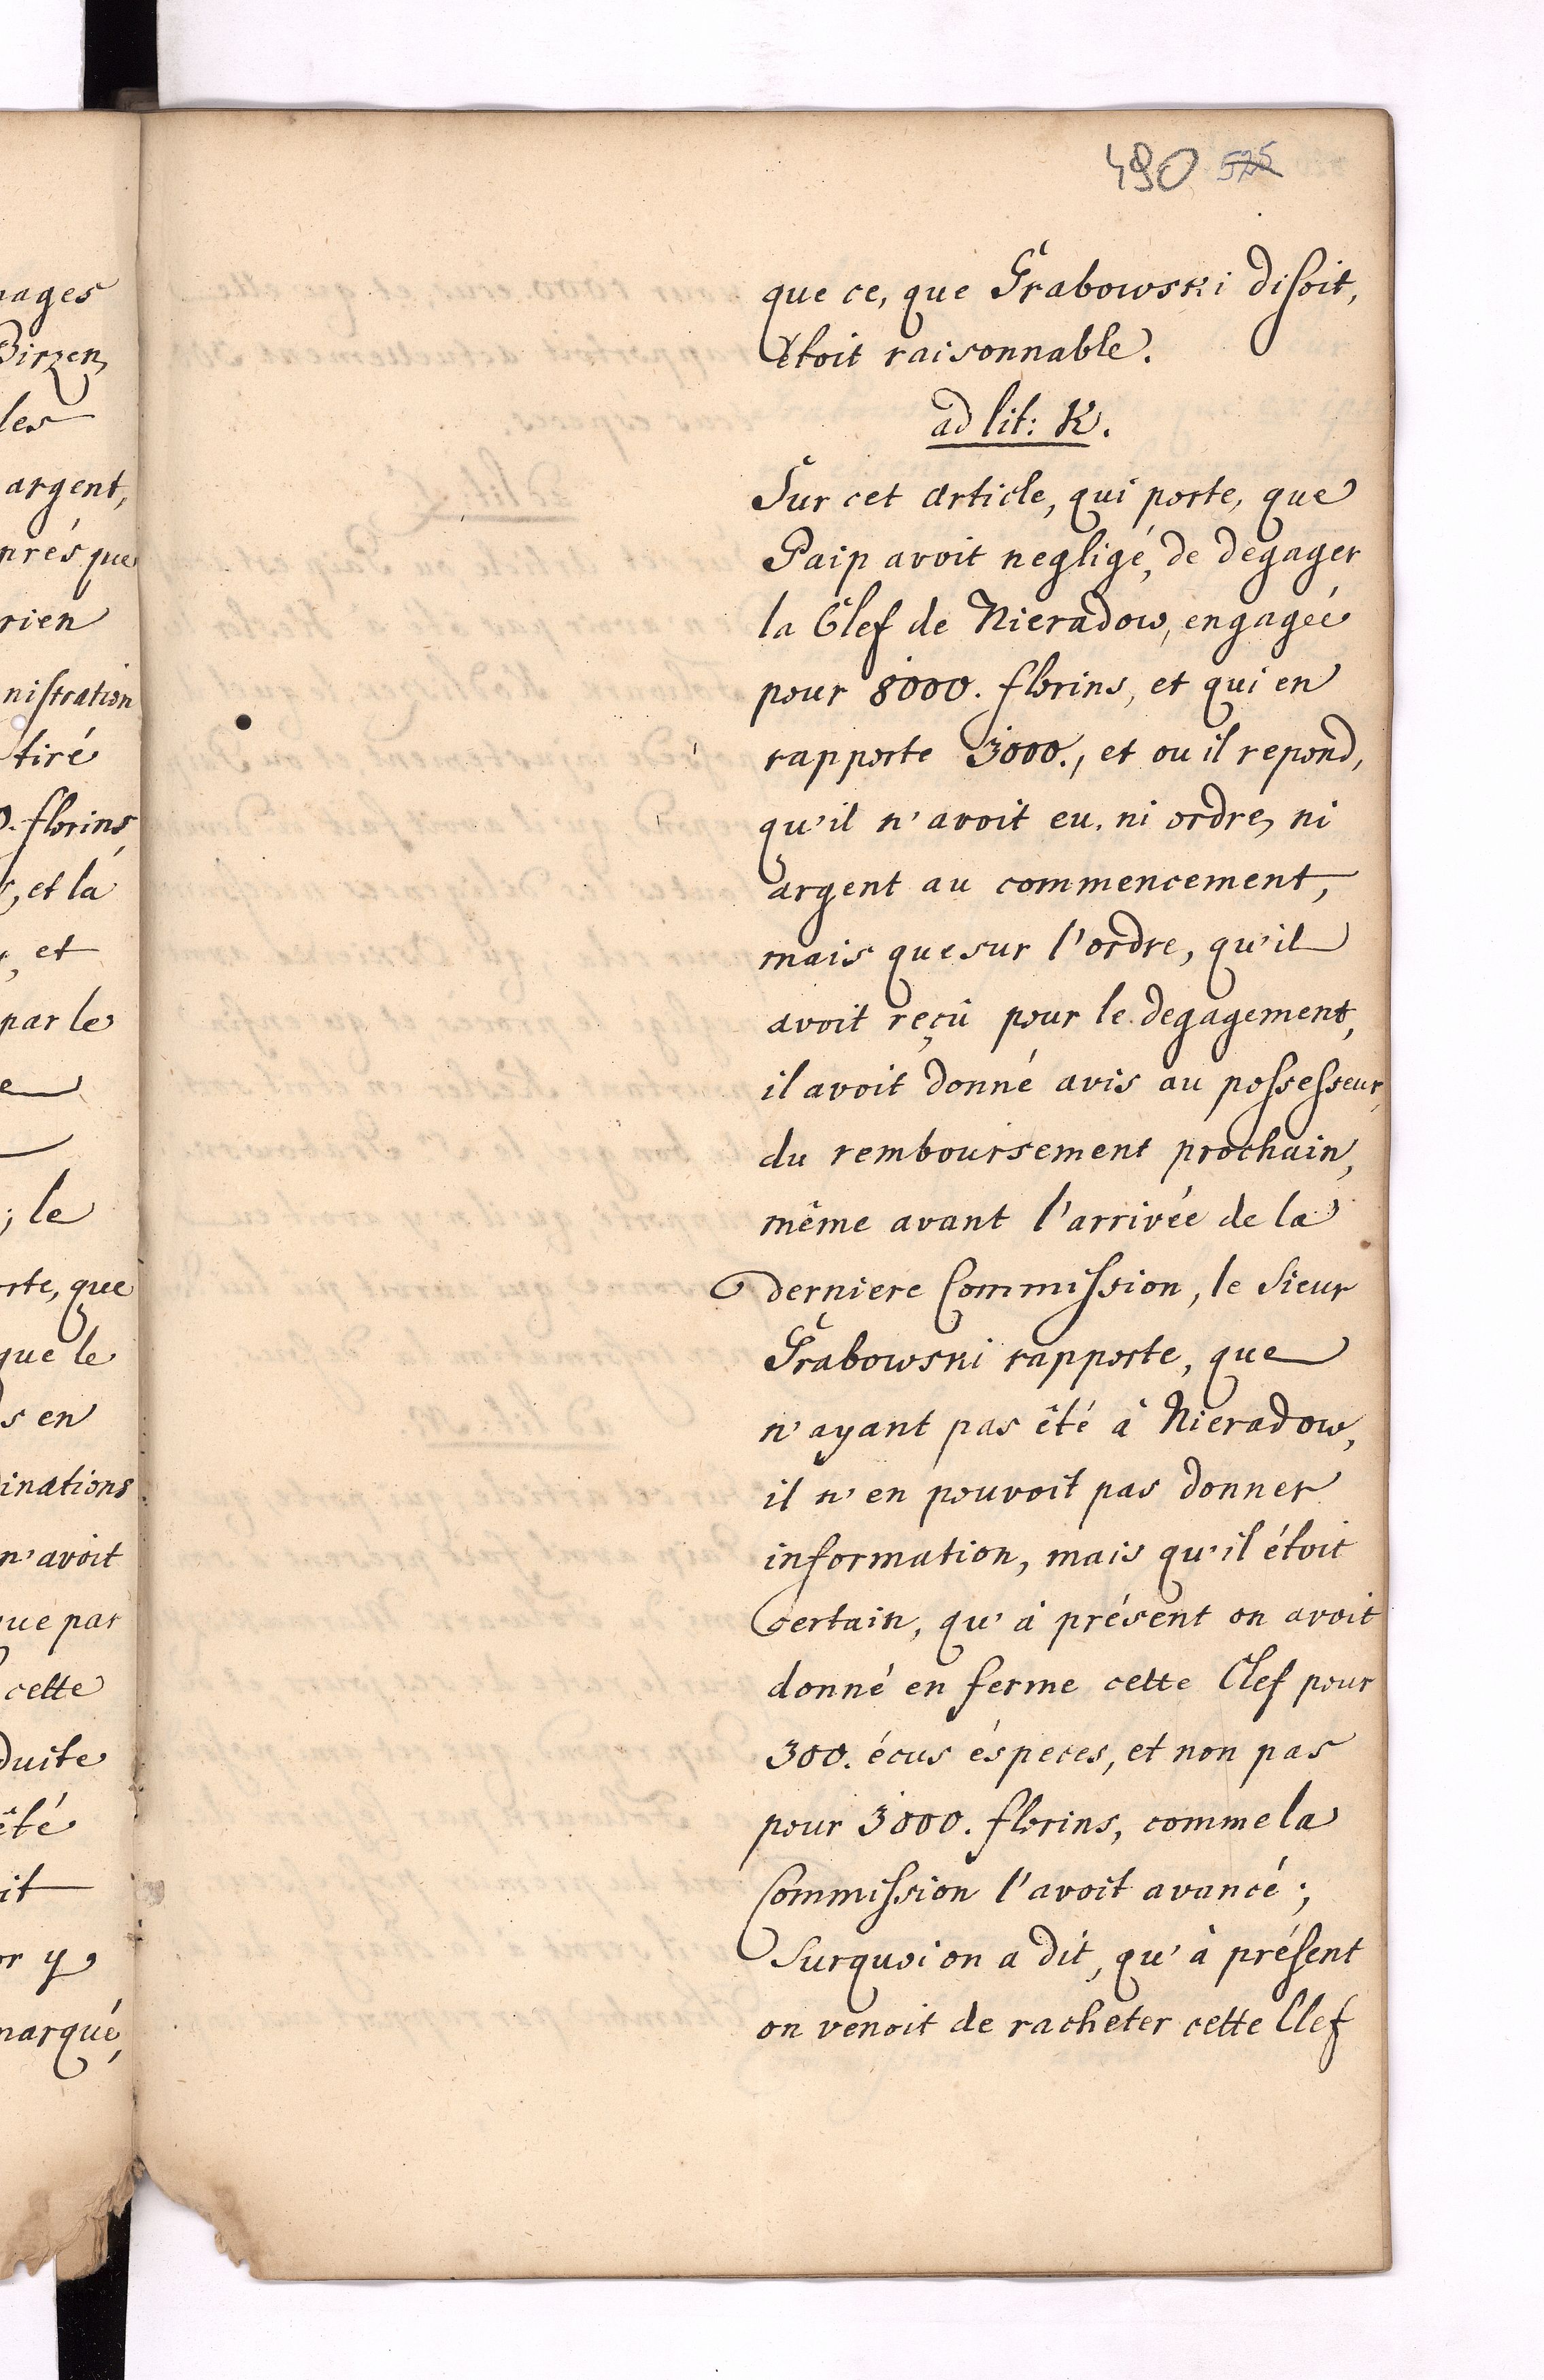 490 525
que ce, que Grabowski disoit,
étoit raisonnable.
ad lit: K.
Sur cet article, qui porte, que
Paip avoit negligé, de degager
la Clef de Nieradow, engagée
pour 8000. florins, et qui en
rapporte 3000., et ou il repond,
qu'il n'avoit eu, ni ordre, ni
argent au commencement,
mais que sur l'ordre, qu'il
avoit reçû pour le degagement,
il avoit donné avis au possesseur,
du remboursement prochain,
même avant l'arrivée de la
derniere Commission, le Sieur
Grabowski rapporte, que
n'ayant pas êté à Nieradow,
il n'en pouvoit pas donner
information, mais qu'il étoit
certain, qu'à présent on avoit
donné en ferme cette Clef pour
300. écus éspeces, et non pas
pour 3000. florins, comme la
Commission l'avoit avancé;
Surquoi on a dit, qu'à présent
on venoit de racheter cette Clef
nages
Birzen
les
argent,
près que
rien
nistration
tiré
0. florins,
, et la
, et
par le
e
; le
rte, que
que le
s en
inations
n'avoit
ue par
cette
duite
êté
it
or y
marqué,